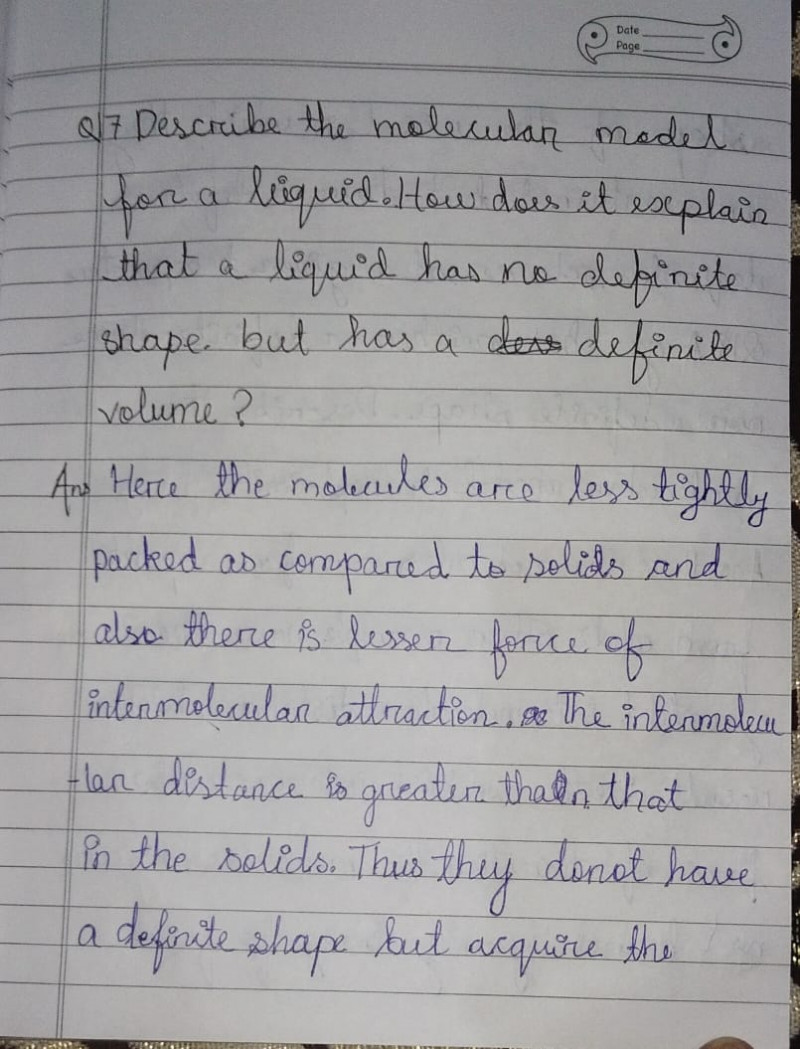 Date
Page
Q7 Describe the molecular model
for a liquid. How does it explain
that a liquid has no definite
shape. but has a definite
volume?
Ans Here the molecules are less tightly
packed as compared to solids and
also there is lesser force of
intermolecular attraction. The intermolecu
-lar distance is greater than that
in the solids. Thus they donot have
a definite shape but acquire the